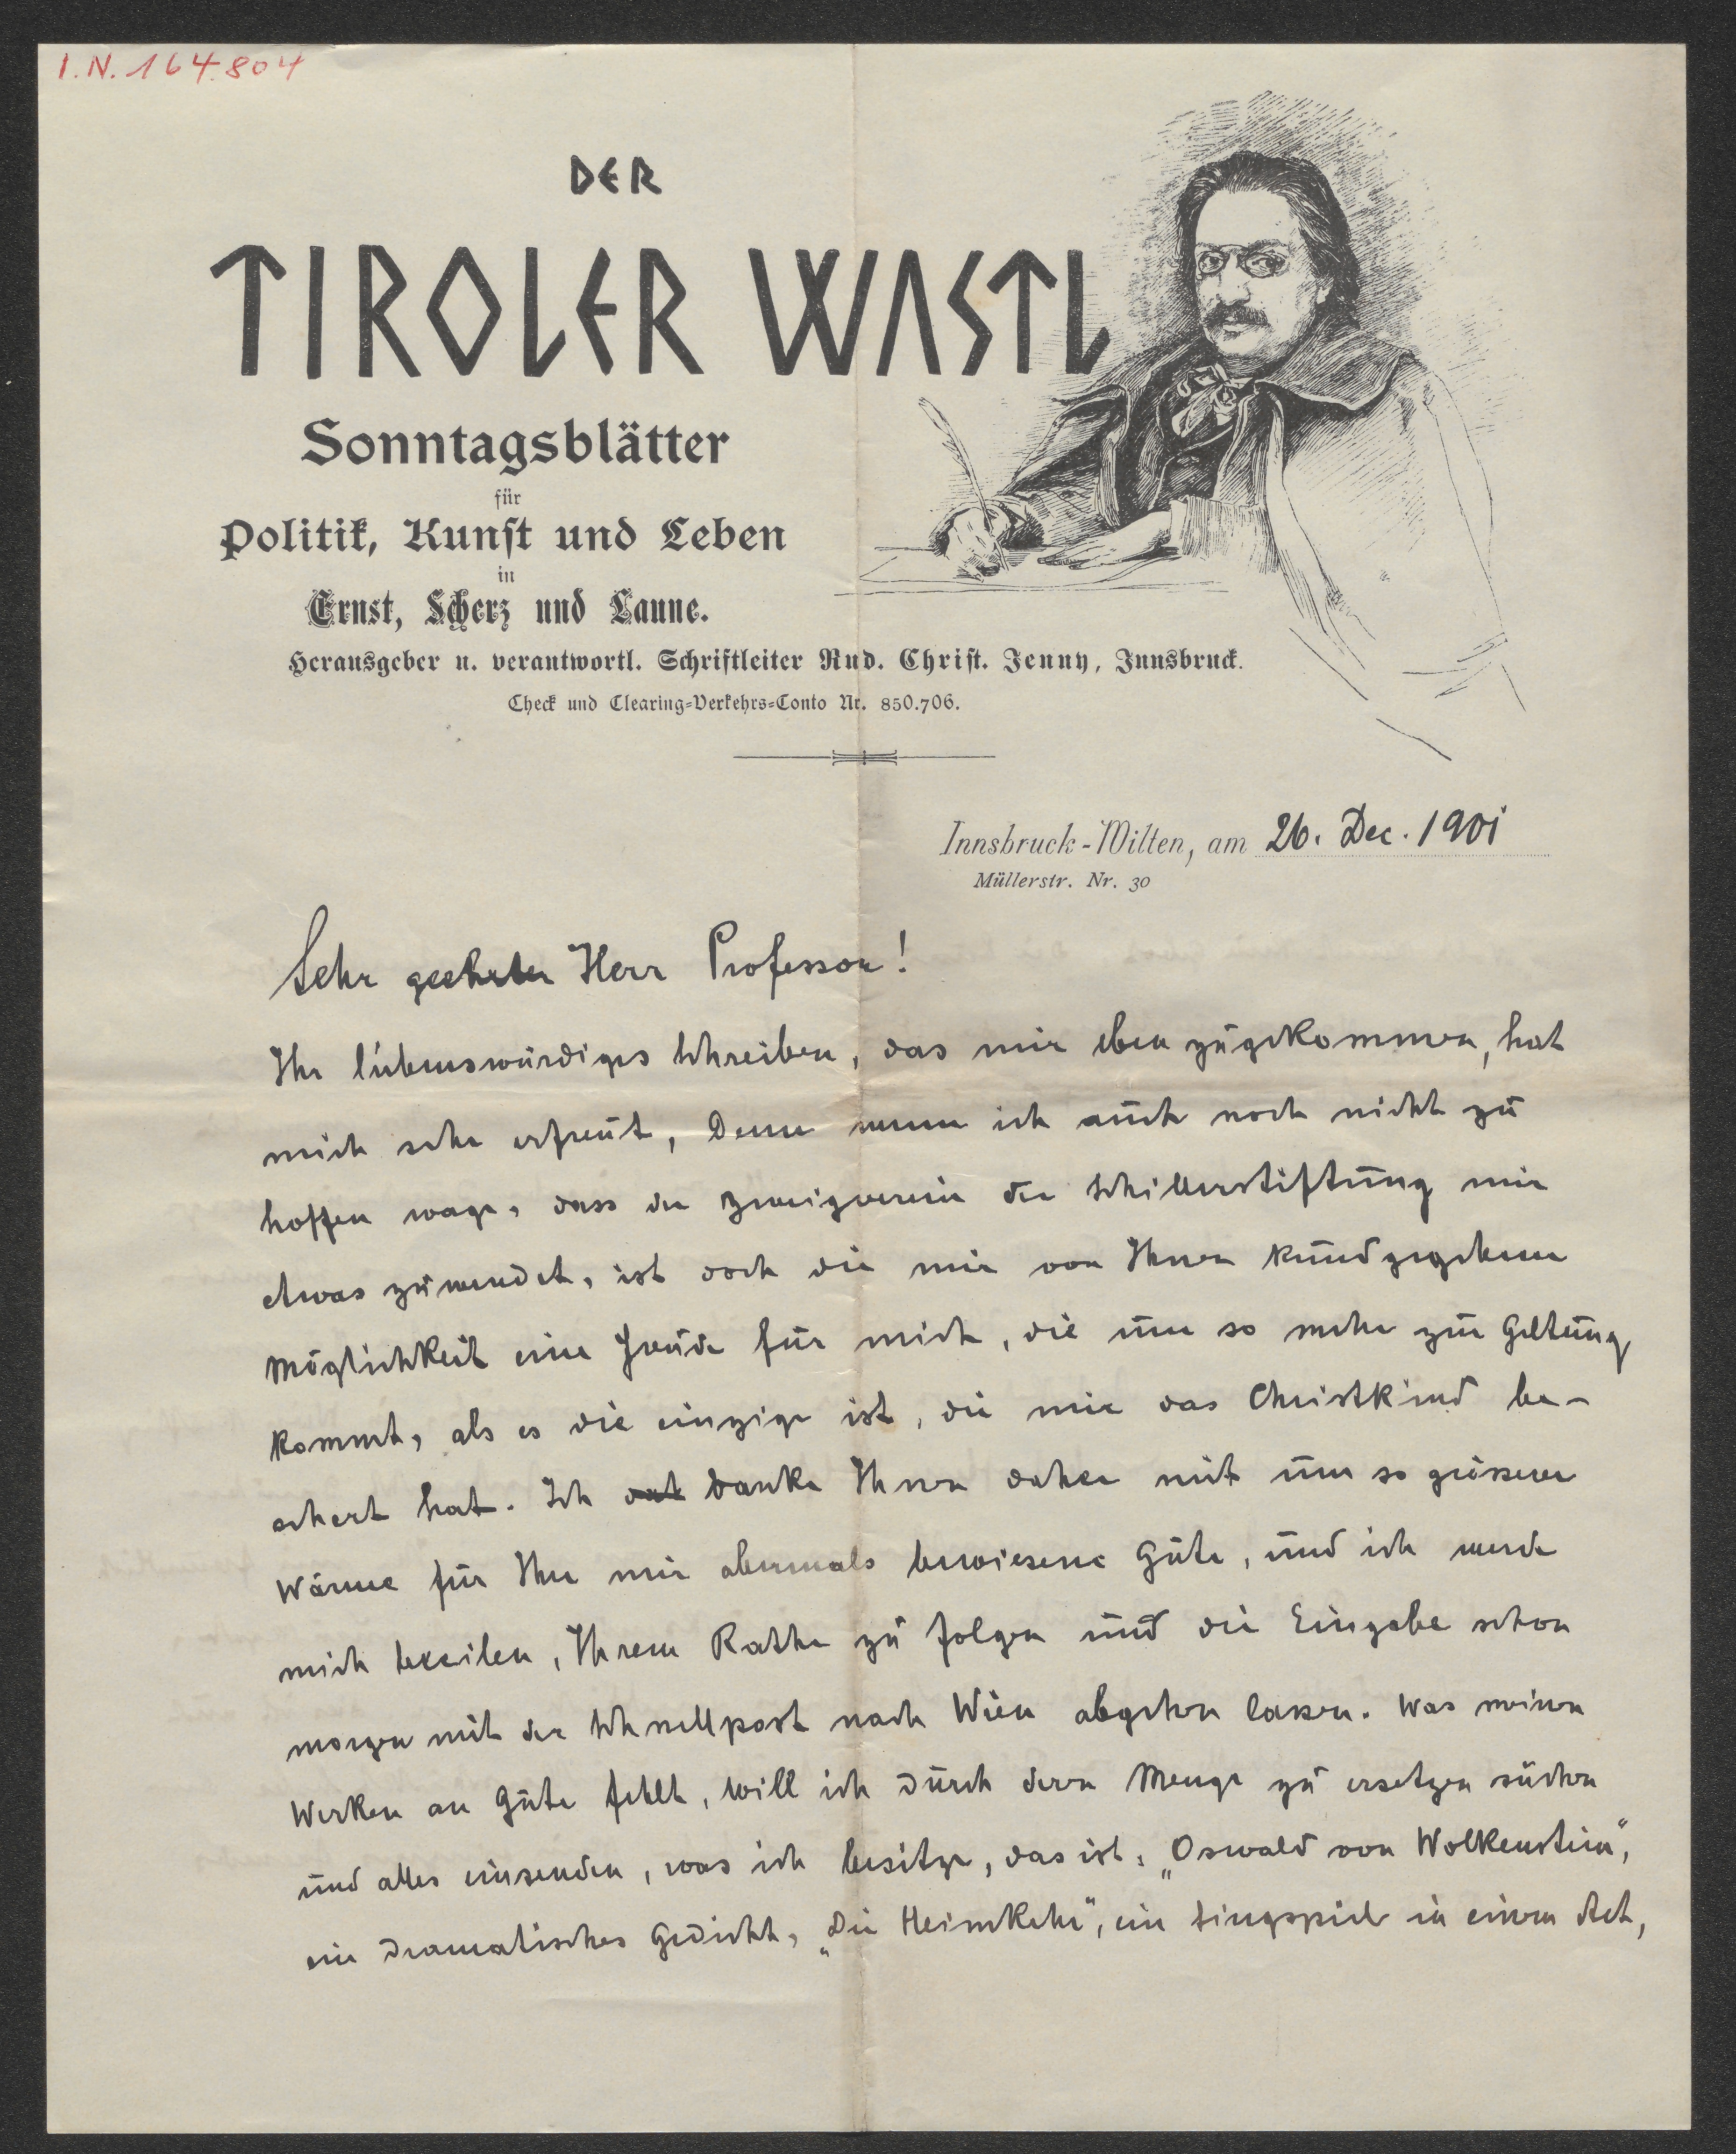 I.N. 164.804
DER
TIROLER WASTL
Sonntagsblätter
für
Politik, Kunst und Leben
in
Ernst, Scherz und Laune.
Herausgeber u. verantwortl. Schriftleiter Rud. Christ. Jenny, Innsbruck.
Check und Clearing-Verkehrs-Conto Nr. 850.706.
Innsbruck-Wilten, am 26. Dec. 1901
Müllerstr. Nr. 30
Sehr geehrter Herr Professor!
Ihr liebenswürdiges Schreiben, das mir eben zugekommen, hat
mich sehr erfreut, denn wenn ich auch noch nicht zu
hoffen wage, dass der Zweigverein der Schillerstiftung mir
etwas zuwendet, ist doch die mir von Ihnen kundgegebene
Möglichkeit eine Freude für mich, die um so mehr zur Geltung
kommt, als es die einzige ist, die mir das Christkind be-
schert hat. Ich danke Ihnen daher mit um so grösserer
Wärme für Ihre mir abermals bewiesene Güte, und ich werde
mich beeilen, Ihrem Rathe zu folgen und die Eingabe schon
morgen mit der Schnellpost nach Wien abgehen lassen. Was meinen
Werken an Güte fehlt, will ich durch deren Menge zu ersetzen suchen
und alles einsenden, was ich besitze, das ist: „Oswald von Wolkenstein“,
ein dramatisches Gedicht, „Die Heimkehr“, ein Singspiel in einem Act,